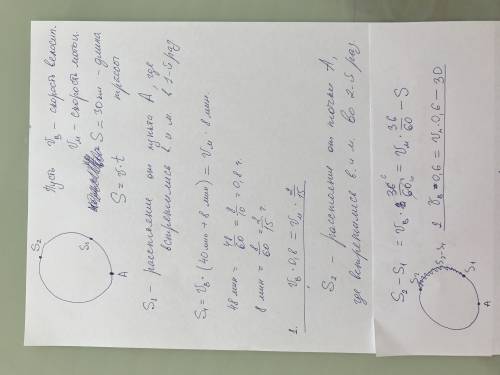 Пусть V_в - скорость велосип.
V_м - скорость мотоц.
S = 30 км - длина
трассы
S = v · t
S_2
S_1
A
S_1 - расстояние от пункта А, где
встретились в. и м. в 1-й раз
S_1 = V_в · (40 мин + 8 мин) = V_м · 8 мин.
48 мин = 48/60 = 8/10 = 0,8 ч.
8 мин = 8/60 = 2/15 ч.
1. V_в · 0,8 = V_м · 2/15
S_2 - расстояние от точки А,
где встретились в. и м. во 2-й раз
S_2 - S_1 = V_в · 36/60 = V_м · 36/60 - S
S_2
S_2 - S_1
S_1
A
2. V_в · 0,6 = V_м · 0,6 - 30